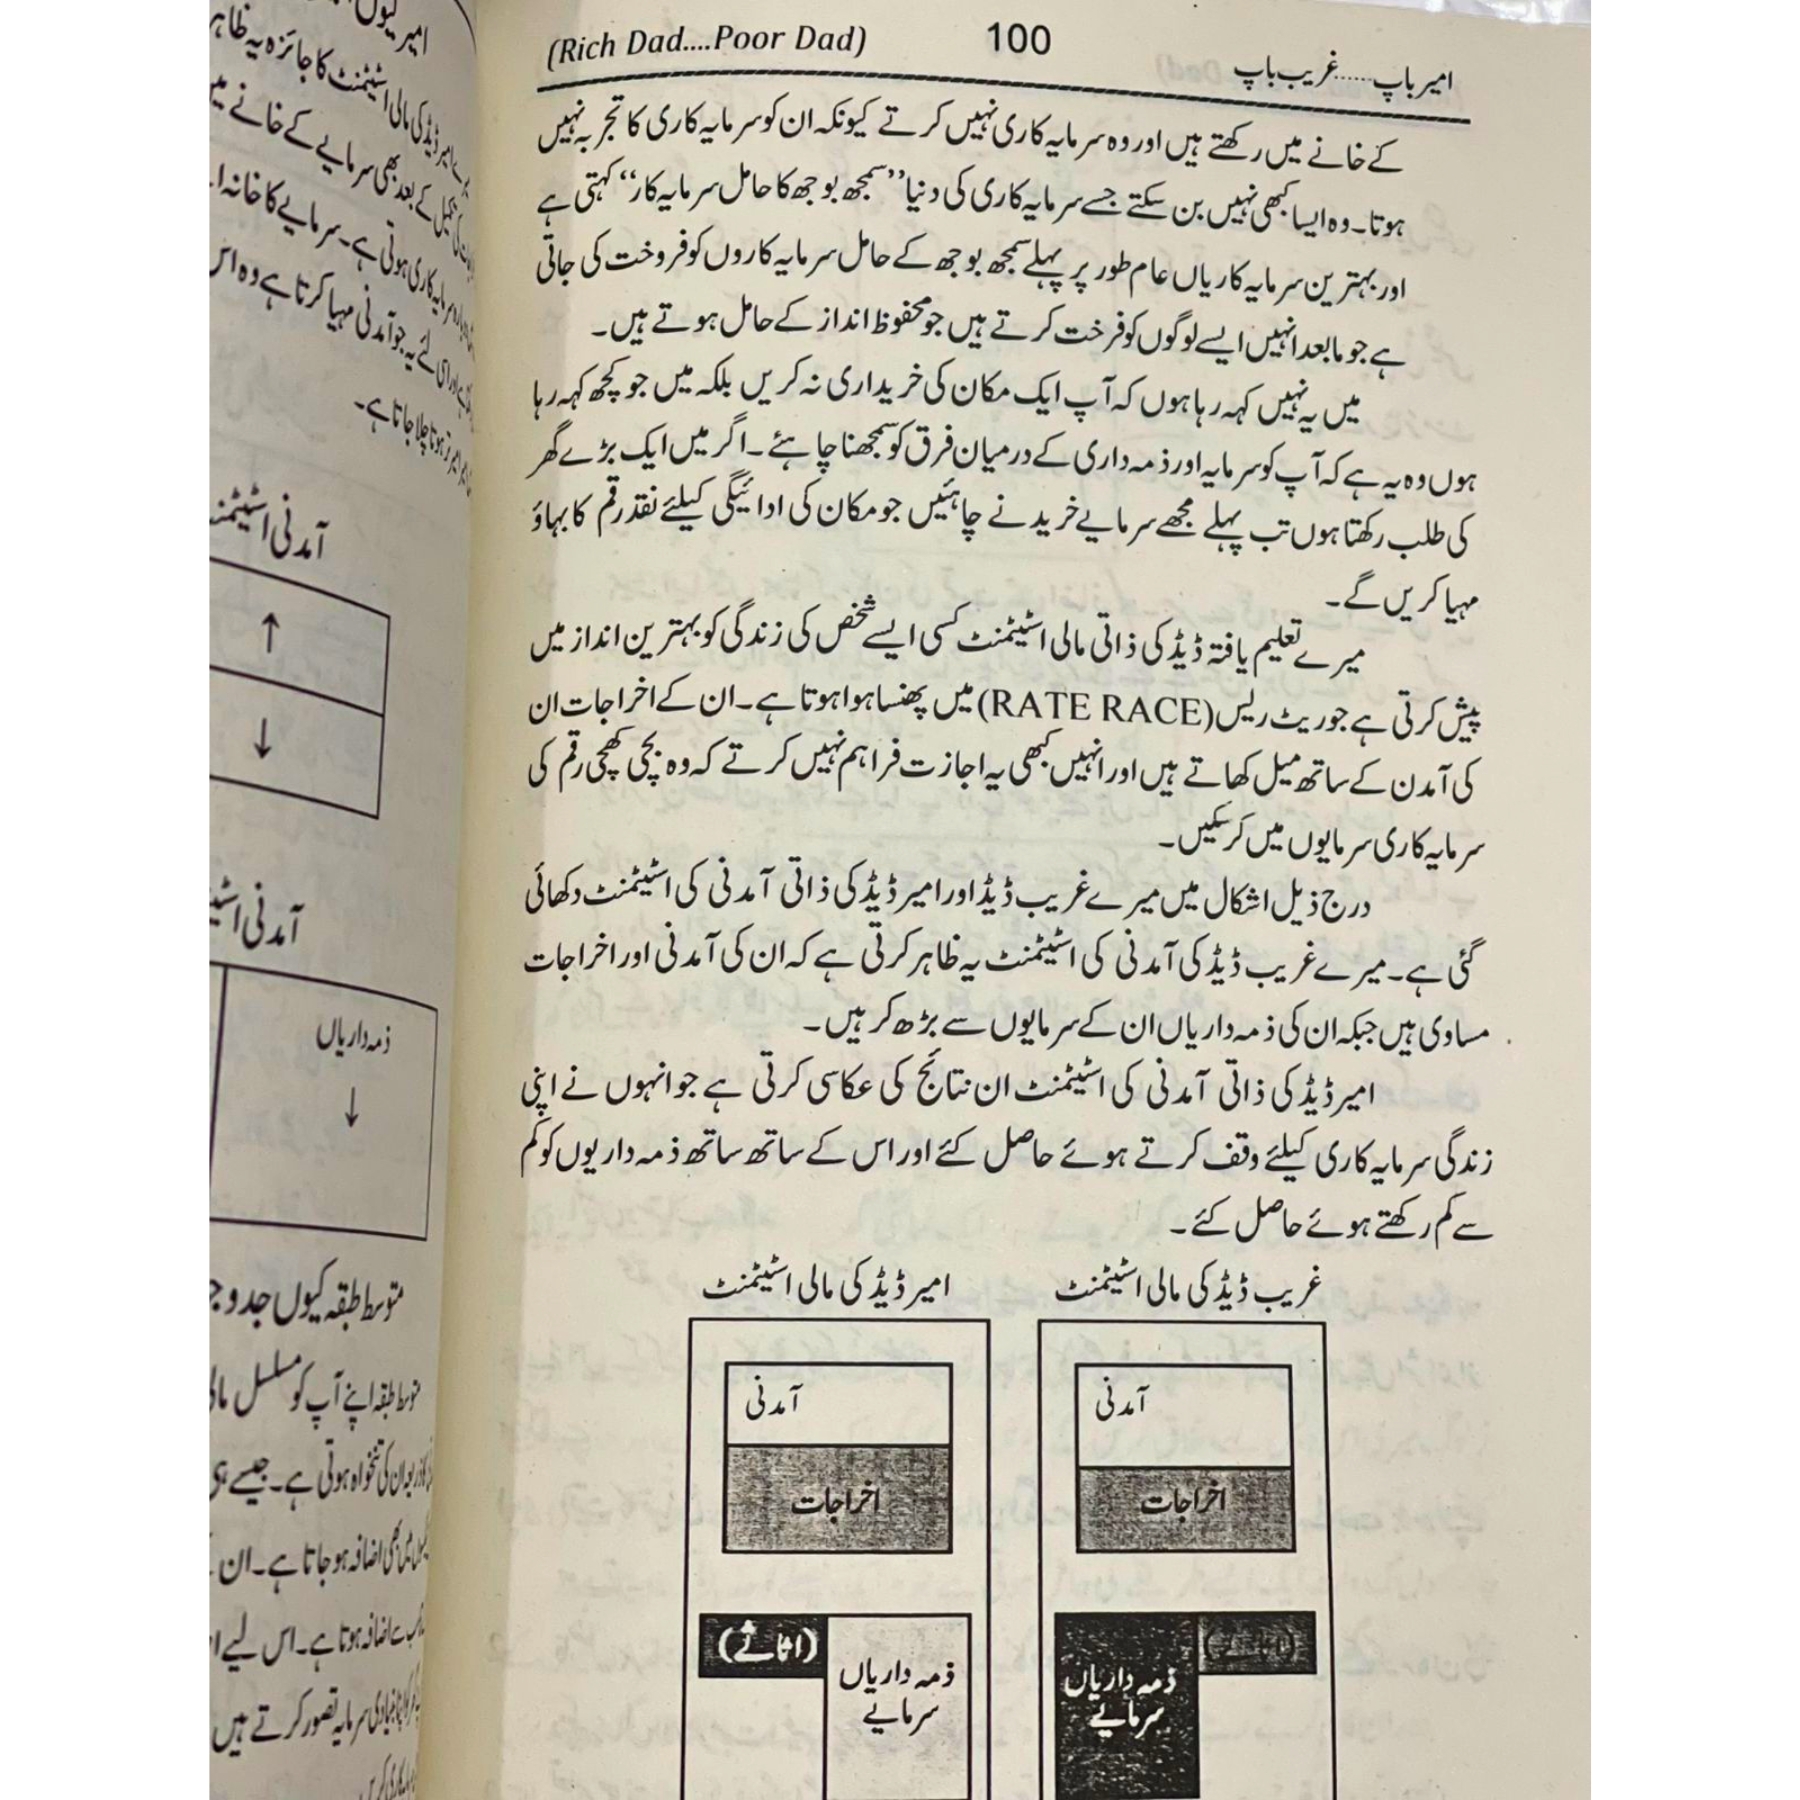 (Rich Dad....Poor Dad) 100 امیر باپ......غریب باپ
کے خانے میں رکھتے ہیں اور وہ سرمایہ کاری نہیں کرتے کیونکہ ان کو سرمایہ کاری کا تجربہ نہیں
ہوتا۔ وہ ایسا کبھی نہیں بن سکتے جسے سرمایہ کاری کی دنیا ”سمجھ بوجھ کا حامل سرمایہ کار“ کہتی ہے
اور بہترین سرمایہ کاریاں عام طور پر پہلے سمجھ بوجھ کے حامل سرمایہ کاروں کو فروخت کی جاتی
ہے جو مابعد انہیں ایسے لوگوں کو فرخت کرتے ہیں جو محفوظ انداز کے حامل ہوتے ہیں۔
میں یہ نہیں کہہ رہا ہوں کہ آپ ایک مکان کی خریداری نہ کریں بلکہ میں جو کچھ کہہ رہا
ہوں وہ یہ ہے کہ آپ کو سرمایہ اور ذمہ داری کے درمیان فرق کو سمجھنا چاہئے۔ اگر میں ایک بڑے گھر
کی طلب رکھتا ہوں تب پہلے مجھے سرمایے خریدنے چاہئیں جو مکان کی ادائیگی کیلئے نقد رقم کا بہاؤ
مہیا کریں گے۔
میرے تعلیم یافتہ ڈیڈ کی ذاتی مالی اسٹیٹمنٹ کسی ایسے شخص کی زندگی کو بہترین انداز میں
پیش کرتی ہے جو ریٹ ریس (RATE RACE) میں پھنسا ہوا ہوتا ہے۔ ان کے اخراجات ان
کی آمدن کے ساتھ میل کھاتے ہیں اور انہیں کبھی یہ اجازت فراہم نہیں کرتے کہ وہ بچی کھچی رقم کی
سرمایہ کاری سرمایوں میں کر سکیں۔
درج ذیل اشکال میں میرے غریب ڈیڈ اور امیر ڈیڈ کی ذاتی آمدنی کی اسٹیٹمنٹ دکھائی
گئی ہے۔ میرے غریب ڈیڈ کی آمدنی کی اسٹیٹمنٹ یہ ظاہر کرتی ہے کہ ان کی آمدنی اور اخراجات
مساوی ہیں جبکہ ان کی ذمہ داریاں ان کے سرمایوں سے بڑھ کر ہیں۔
امیر ڈیڈ کی ذاتی آمدنی کی اسٹیٹمنٹ ان نتائج کی عکاسی کرتی ہے جو انہوں نے اپنی
زندگی سرمایہ کاری کیلئے وقف کرتے ہوئے حاصل کئے اور اس کے ساتھ ساتھ ذمہ داریوں کو کم
سے کم رکھتے ہوئے حاصل کئے۔
غریب ڈیڈ کی مالی اسٹیٹمنٹ
آمدنی
اخراجات
(اثاثے)
ذمہ داریاں
سرمایے
امیر ڈیڈ کی مالی اسٹیٹمنٹ
آمدنی
اخراجات
(اثاثے)
ذمہ داریاں
سرمایے
امیر کیوں
امیر ڈیڈ کی مالی اسٹیٹمنٹ کا جائزہ یہ ظاہر
کے بعد بھی سرمایے کے خانے میں
سرمایہ کاری ہوتی ہے۔ سرمایے کا خانہ
لئے یہ جو آمدنی مہیا کرتا ہے وہ اس
امیر تر ہوتا چلا جاتا ہے۔
آمدنی
↑
↓
آمدنی
ذمہ داریاں
↓
متوسط طبقہ کیوں
متوسط طبقہ اپنے آپ کو مسلسل
ان کی تنخواہ ہوتی ہے۔ جیسے ہی
میں بھی اضافہ ہو جاتا ہے۔ ان
سے اضافہ ہوتا ہے۔ اس لیے
بنیادی سرمایہ تصور کرتے ہیں